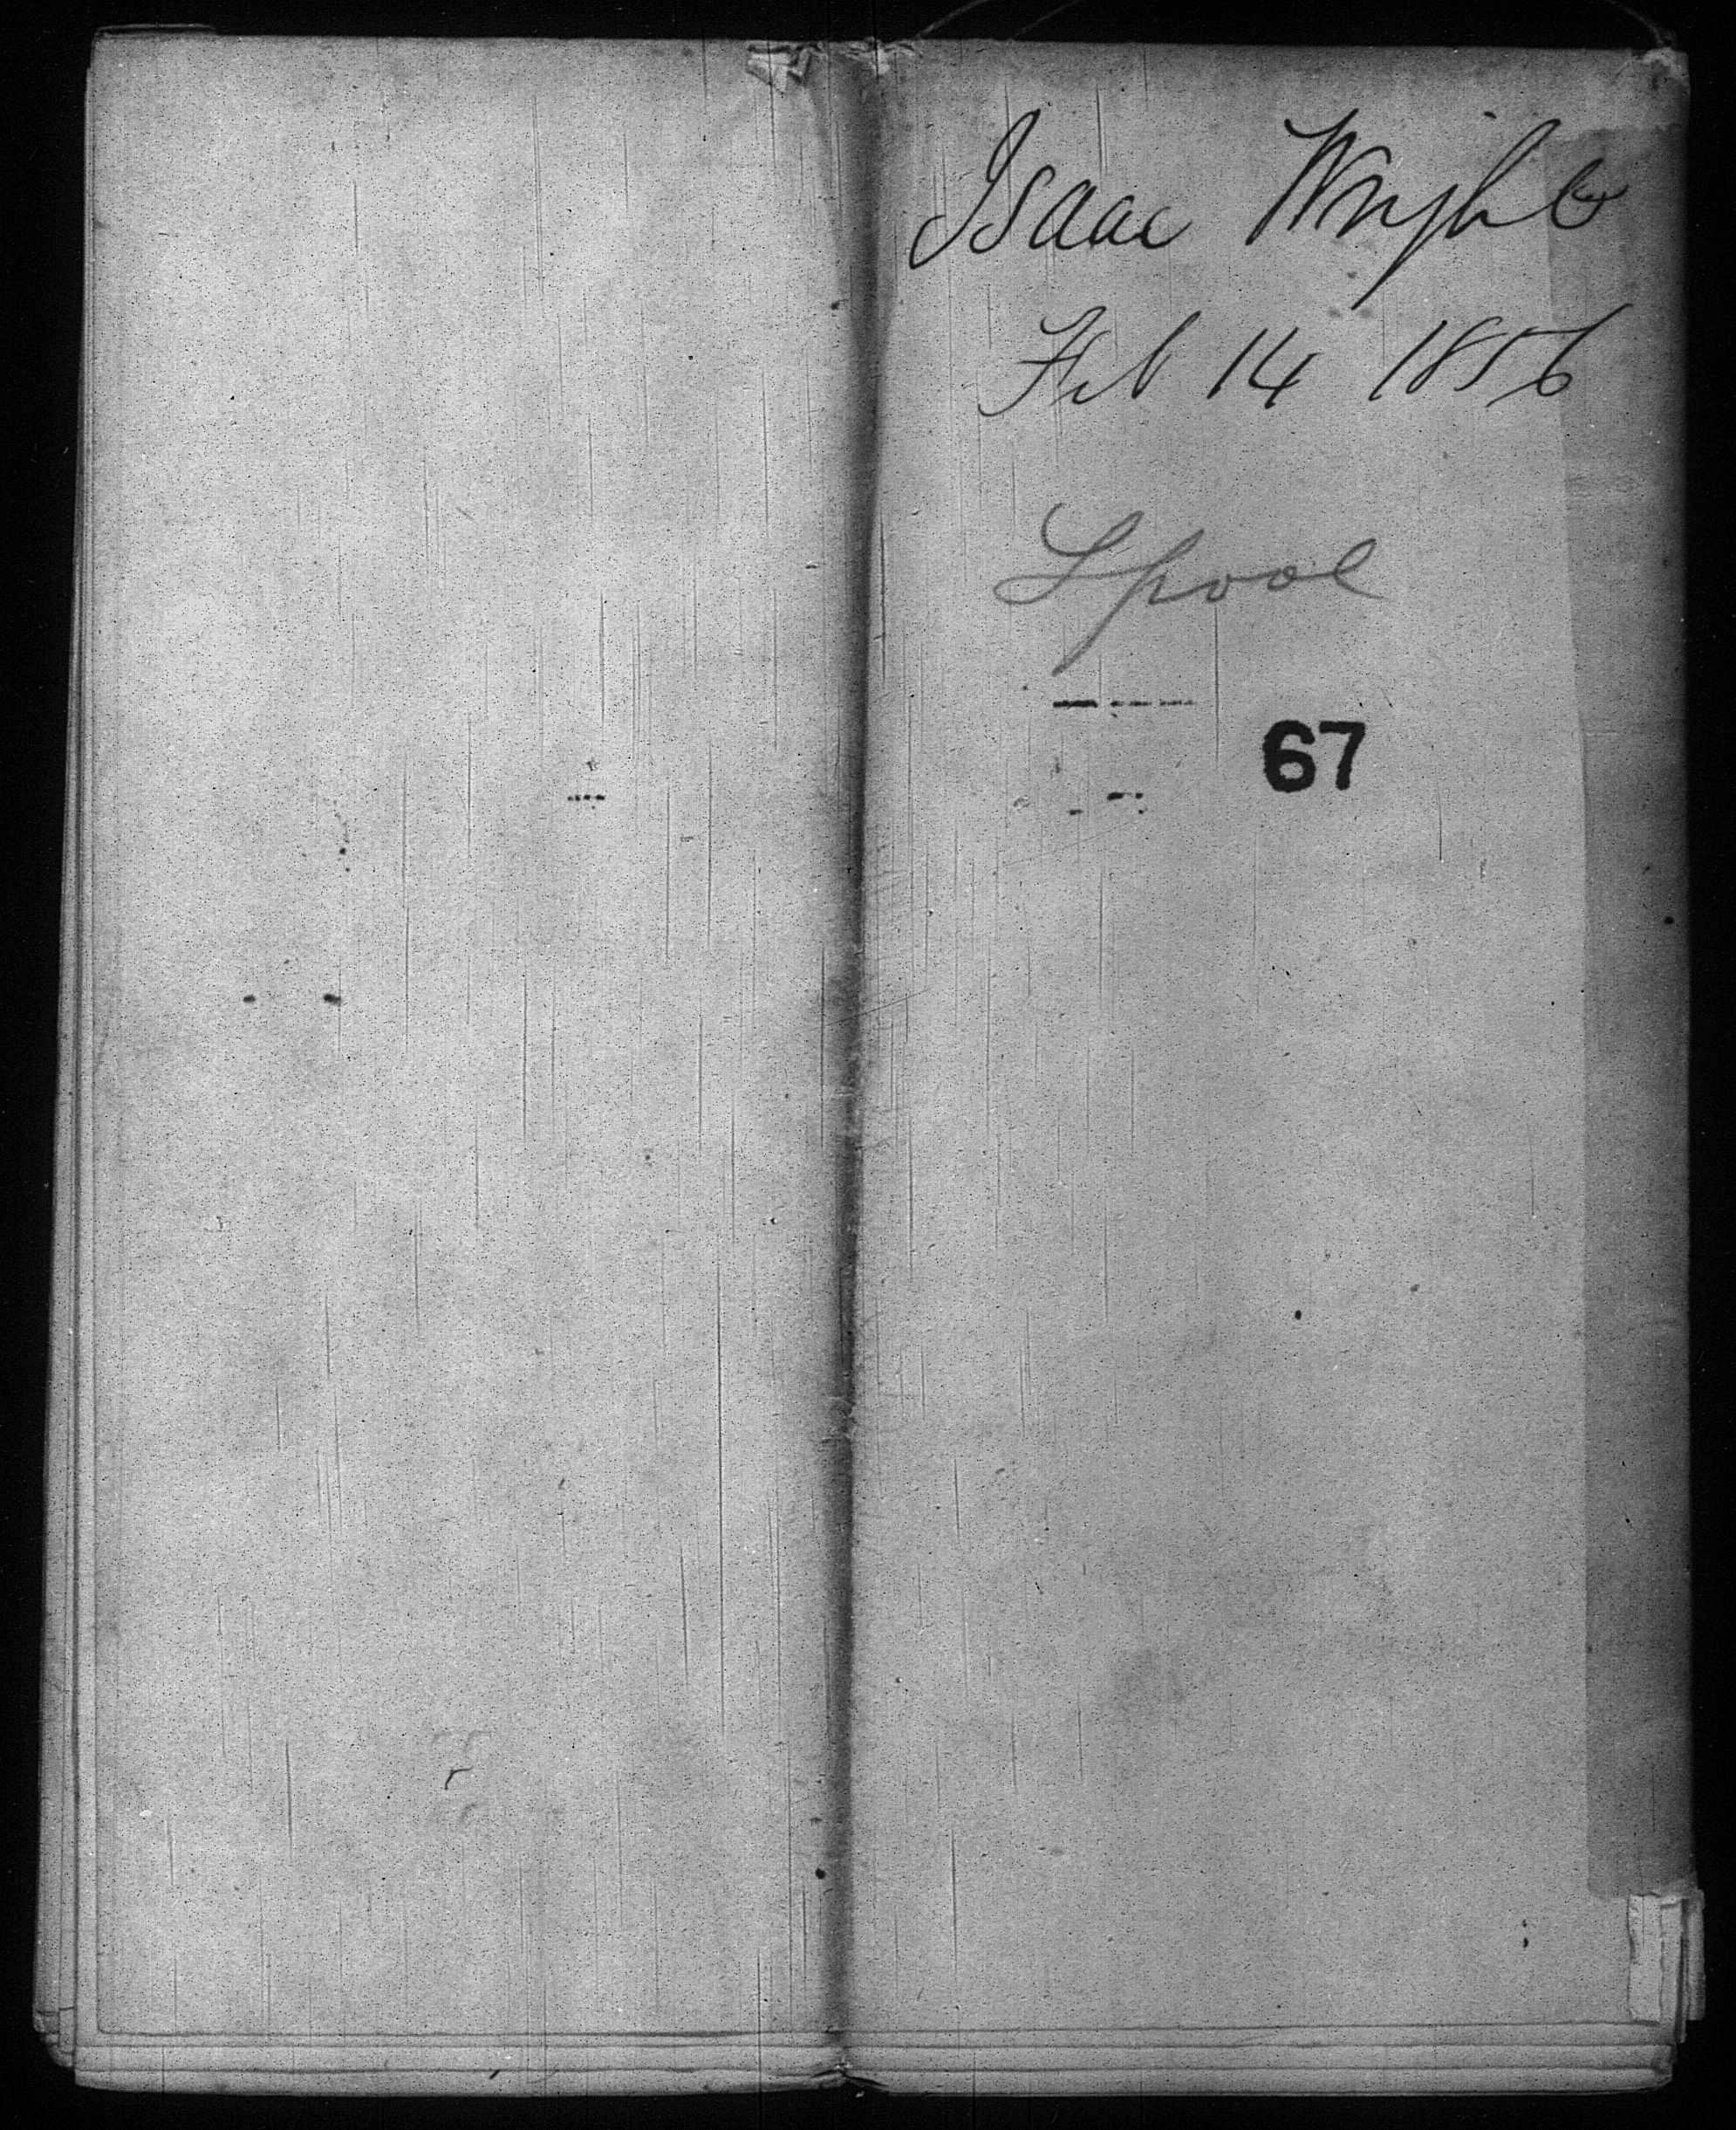 Isaac Wright
Feb 14 1856
Lpool
67